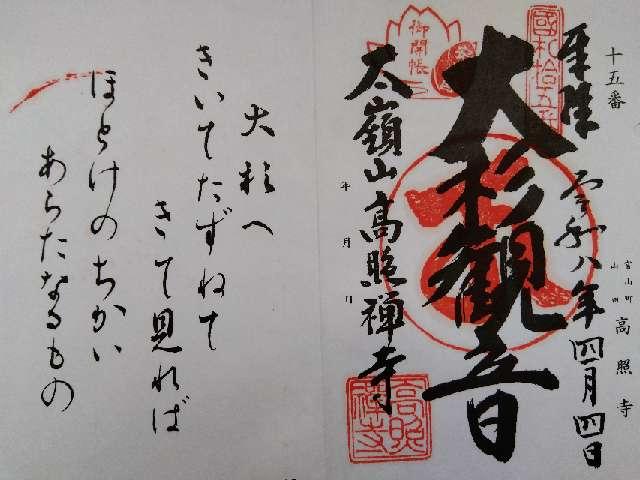 十五番
奉拝
令和八年四月四日
富山町
山田
高照寺
國札拾五番
大杉観音
御開帳
太嶺山高照禅寺
年月日
高照禅寺
大杉へ
きいてたずねて
きて見れば
ほとけのちかい
あらたなるもの